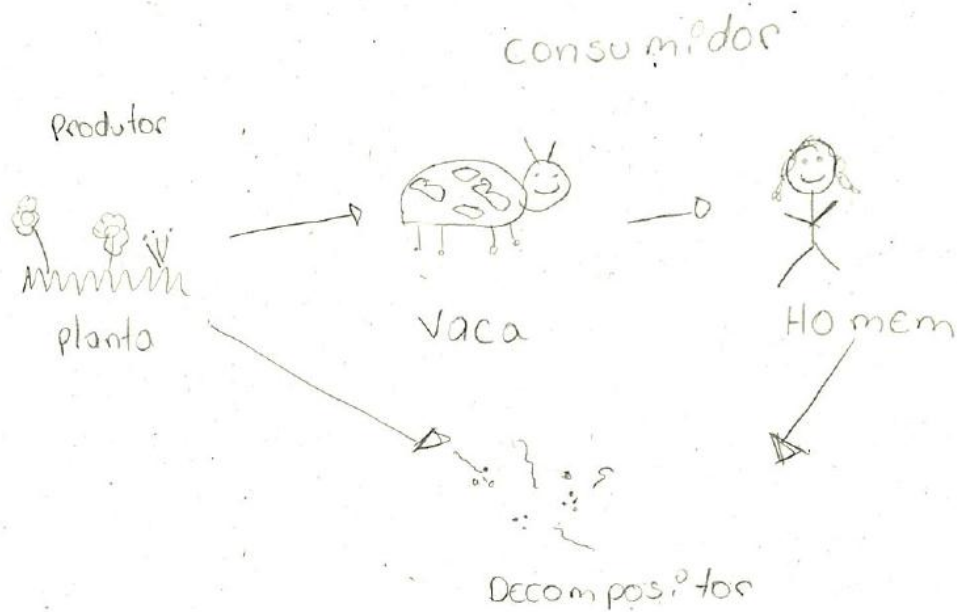 consumidor
Produtor
planta
Vaca
Homem
Decompositor